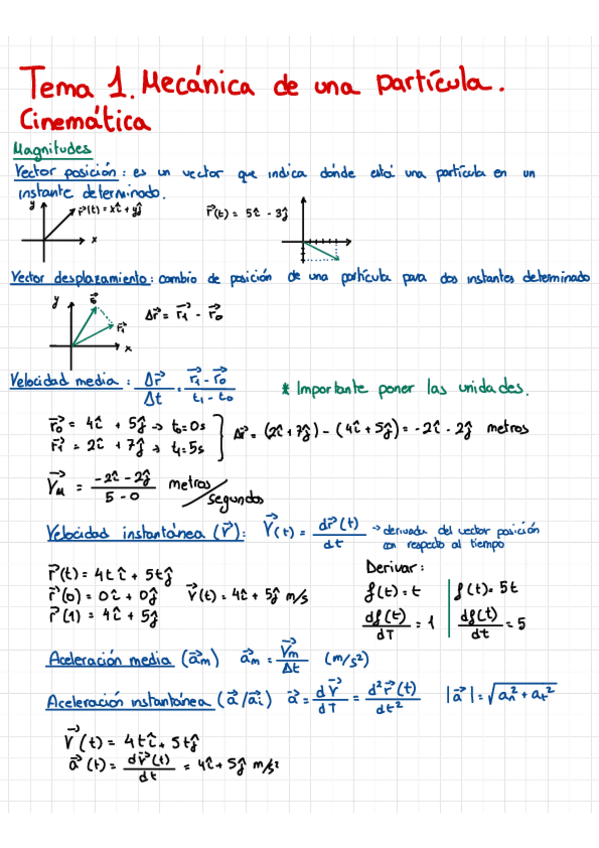 Tema 1. Mecánica de una partícula.
Cinemática
Magnitudes
Vector posición: es un vector que indica dónde está una partícula en un
instante determinado.
y r⃗(t) = xî + yĵ x
r⃗(t) = 5î - 3ĵ
Vector desplazamiento: cambio de posición de una partícula para dos instantes determinado
y r⃗₀ r⃗₁ x
Δr⃗ = r⃗₁ - r⃗₀
Velocidad media: Δr⃗/Δt = (r⃗₁ - r⃗₀)/(t₁ - t₀)
* Importante poner las unidades.
r⃗₀ = 4î + 5ĵ → t₀=0s
r⃗₁ = 2î + 7ĵ → t₁=5s
Δr⃗ = (2î+7ĵ) - (4î+5ĵ) = -2î - 2ĵ metros
V⃗ₘ = (-2î - 2ĵ)/(5 - 0) metros/segundos
Velocidad instantánea (V⃗): V⃗(t) = dr⃗(t)/dt → derivada del vector posición
con respecto al tiempo
r⃗(t) = 4tî + 5tĵ
r⃗(0) = 0î + 0ĵ
r⃗(1) = 4î + 5ĵ
V⃗(t) = 4î + 5ĵ m/s
Derivar:
f(t) = t
df(t)/dT = 1
f(t) = 5t
df(t)/dt = 5
Aceleración media (a⃗ₘ) a⃗ₘ = V⃗ₘ/Δt (m/s²)
Aceleración instantánea (a⃗/a⃗ᵢ) a⃗ = dV⃗/dT = d²r⃗(t)/dt² |a⃗| = √(aₙ² + aₜ²)
V⃗(t) = 4tî + 5tĵ
a⃗(t) = dv⃗(t)/dt = 4î + 5ĵ m/s²